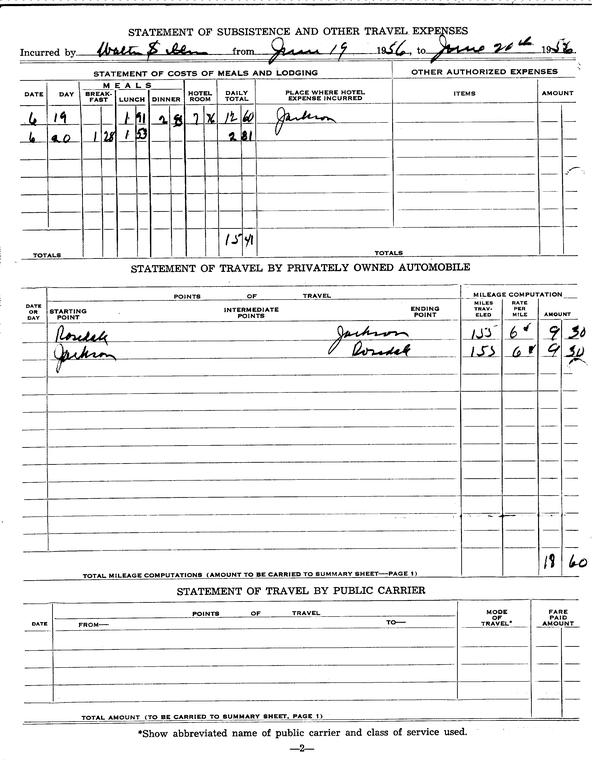 STATEMENT OF SUBSISTENCE AND OTHER TRAVEL EXPENSES
Incurred by Walter from June 19 1956, to June 20th 1956
STATEMENT OF COSTS OF MEALS AND LODGING OTHER AUTHORIZED EXPENSES
DATE DAY MEALS BREAK-FAST LUNCH DINNER HOTEL ROOM DAILY TOTAL PLACE WHERE HOTEL EXPENSE INCURRED ITEMS AMOUNT
6 19 1 91 2 93 7 76 12 60 Jackson
6 20 1 28 1 53 2 81
15 41
TOTALS TOTALS
STATEMENT OF TRAVEL BY PRIVATELY OWNED AUTOMOBILE
POINTS OF TRAVEL MILEAGE COMPUTATION
DATE OR DAY STARTING POINT INTERMEDIATE POINTS ENDING POINT MILES TRAV-ELED RATE PER MILE AMOUNT
Rosedale Jackson 155 6¢ 9 30
Jackson Rosedale 155 6¢ 9 30
18 60
TOTAL MILEAGE COMPUTATIONS (AMOUNT TO BE CARRIED TO SUMMARY SHEET—PAGE 1)
STATEMENT OF TRAVEL BY PUBLIC CARRIER
POINTS OF TRAVEL
DATE FROM— TO— MODE OF TRAVEL* FARE PAID AMOUNT
TOTAL AMOUNT (TO BE CARRIED TO SUMMARY SHEET, PAGE 1)
*Show abbreviated name of public carrier and class of service used.
—2—